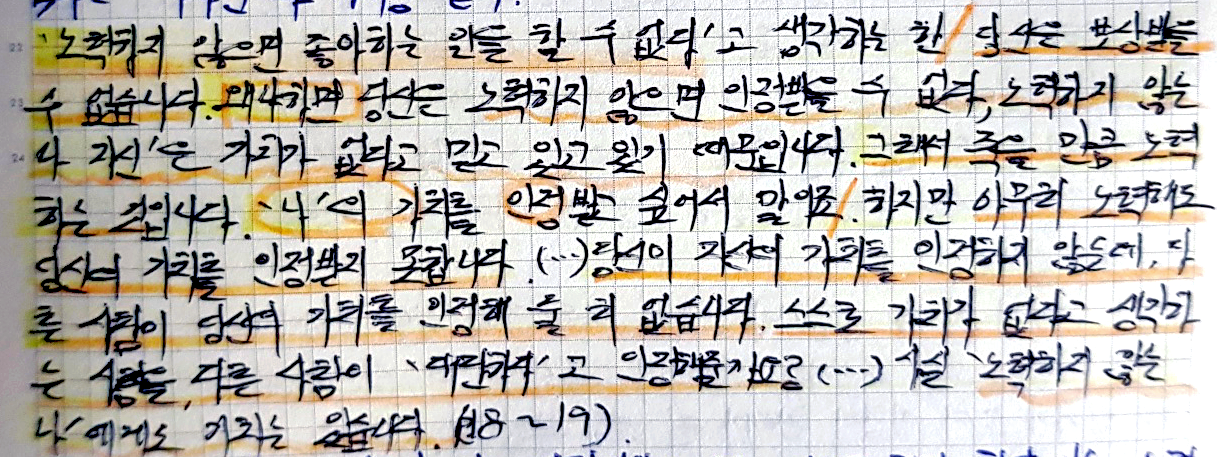 '노력하지 않으면 좋아하는 일을 할 수 없다'고 생각하는 한 당신은 보상받을
수 없습니다. 왜냐하면 당신은 노력하지 않으면 인정받을 수 없다, 노력하지 않는
나 자신'은 가치가 없다고 믿고 있고 있기 때문입니다. 그래서 죽을 만큼 노력
하는 것입니다. '나'의 가치를 인정받고 싶어서 말이죠. 하지만 아무리 노력해도
당신의 가치를 인정받지 못합니다. (…) 당신이 자신의 가치를 인정하지 않는데, 다
른 사람이 당신의 가치를 인정해 줄 리 없습니다. 스스로 가치가 없다고 생각하
는 사람을, 다른 사람이 '대단하다'고 인정해줄까요? (…) 사실 '노력하지 않는
나'에게도 가치는 있습니다. (18~19).